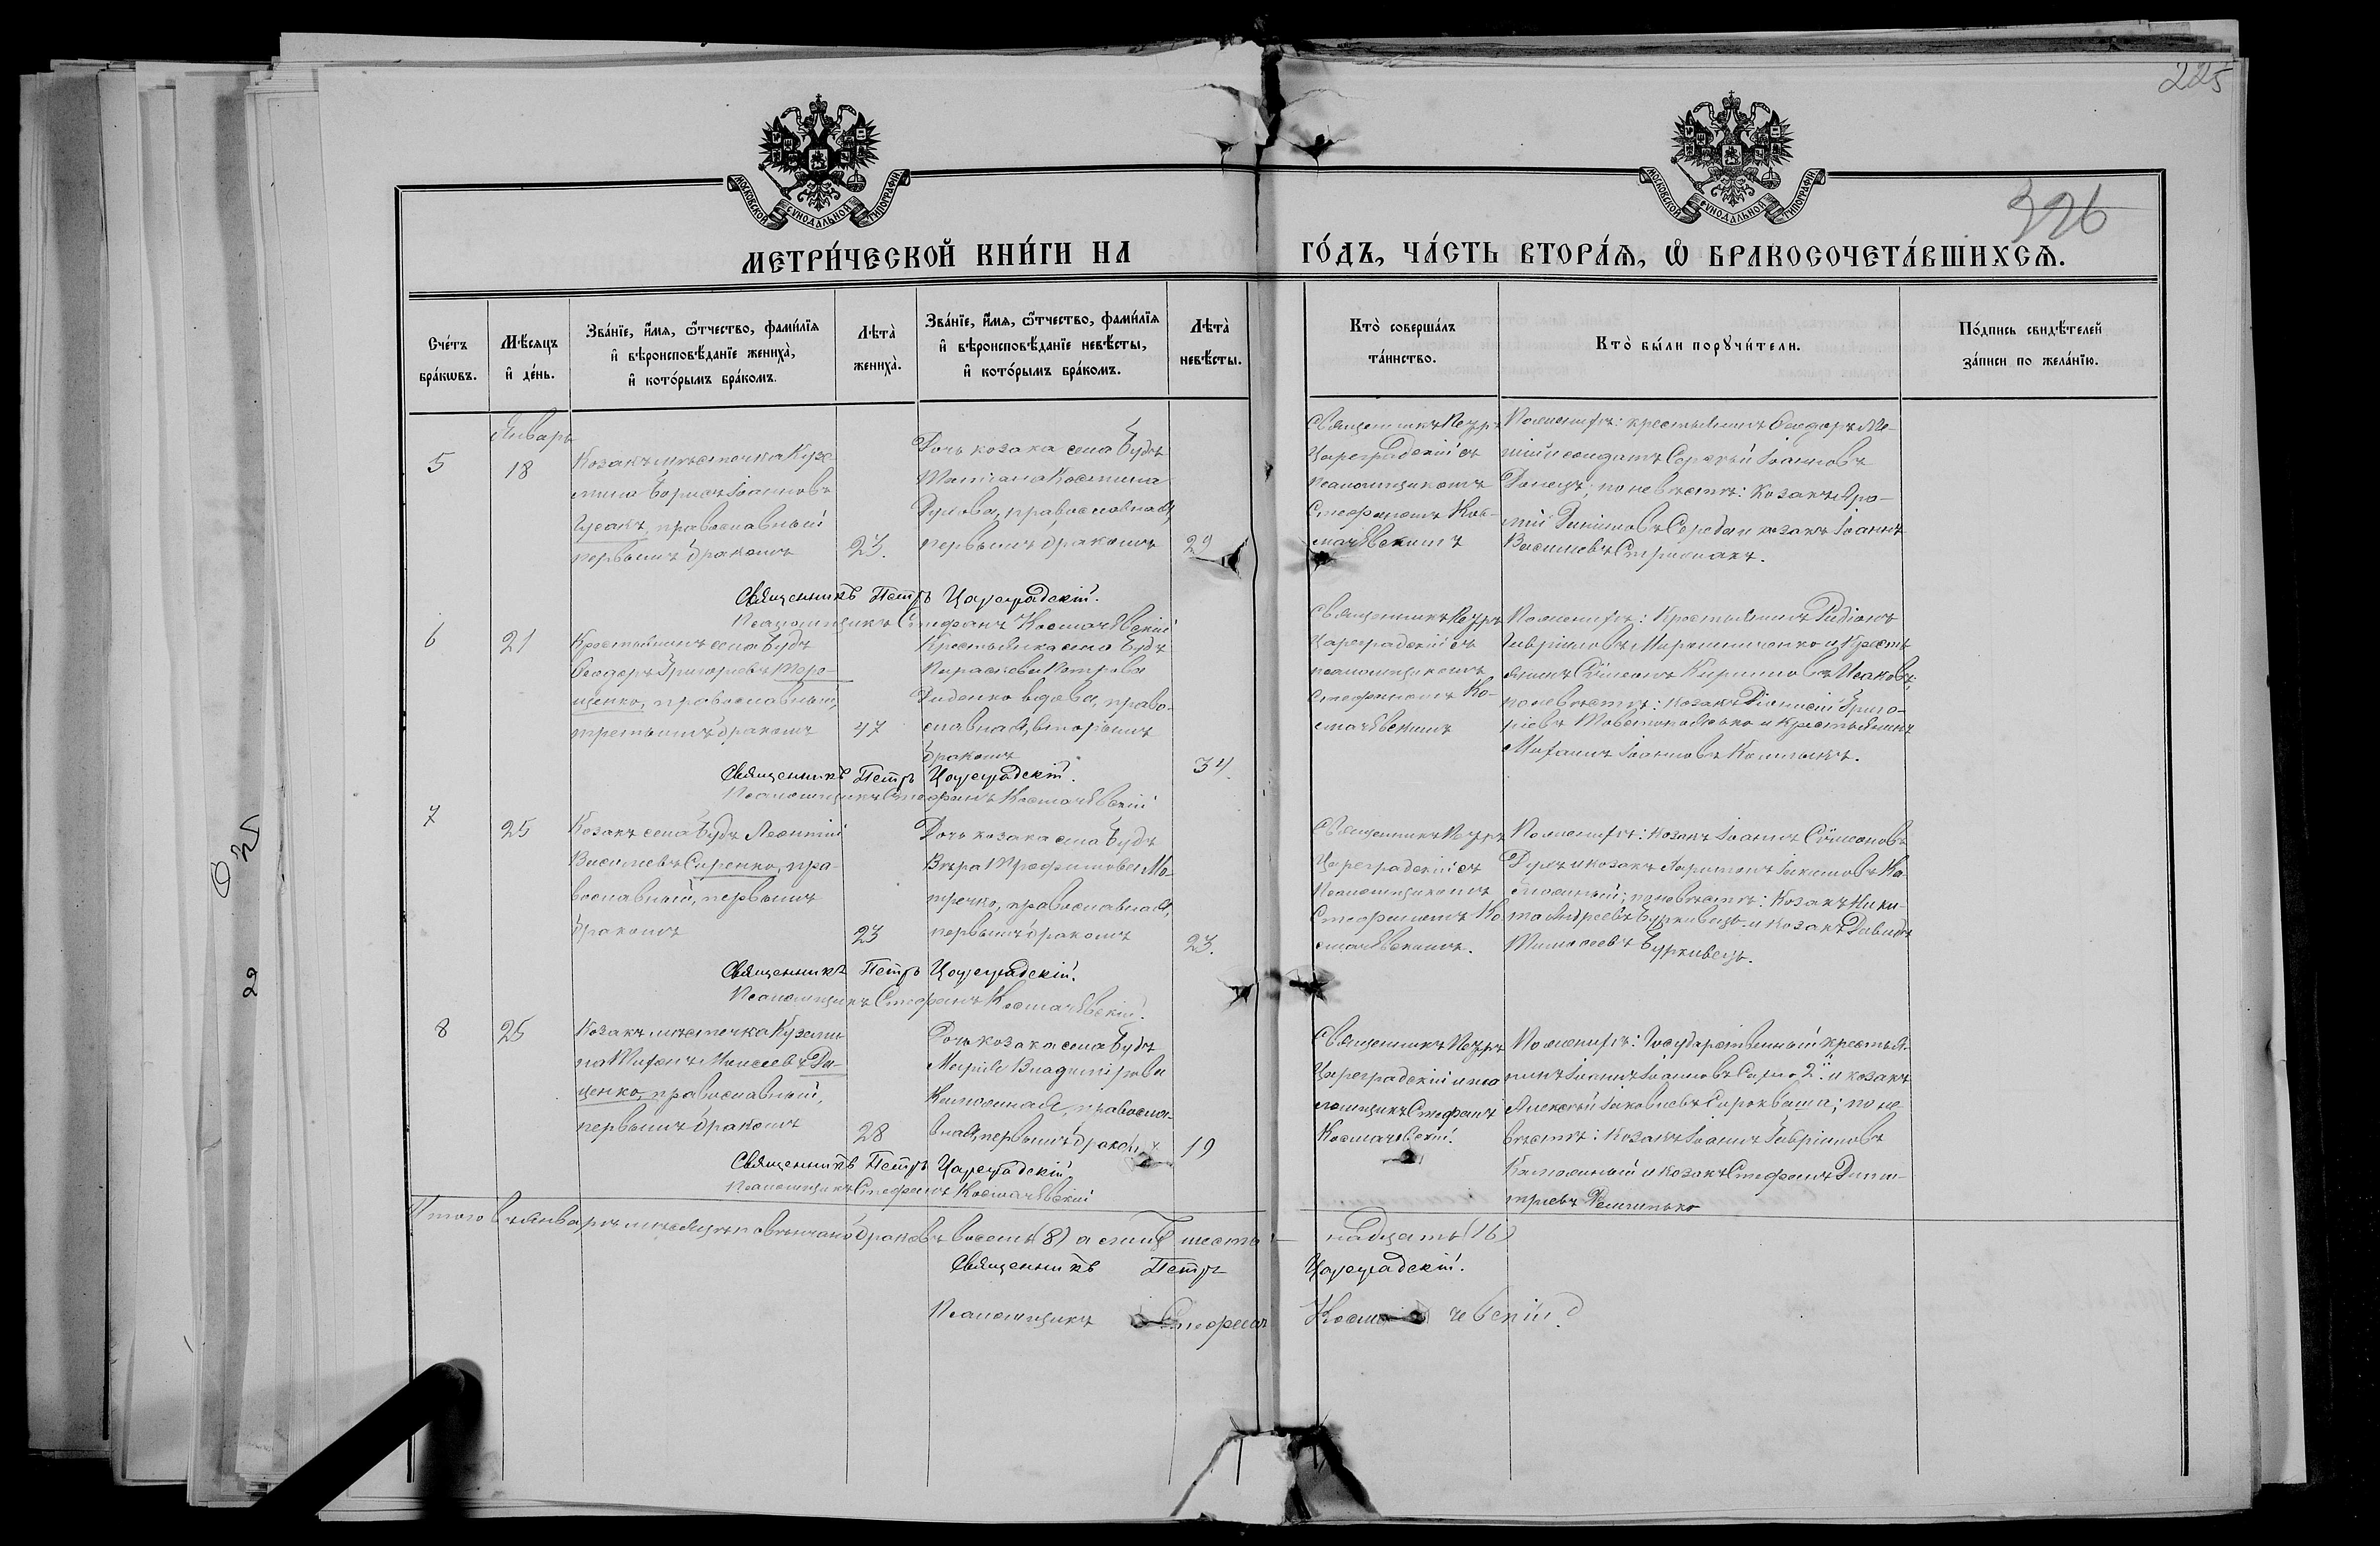 225
326
МОСКОВСКОЙ СѴНОДАЛЬНОЙ ТИПОГРАФІИ
МОСКОВСКОЙ СѴНОДАЛЬНОЙ ТИПОГРАФІИ
МЕТРИ́ЧЕСКОЙ КНИ́ГИ НА ГО́ДЪ, ЧА́СТЬ ВТОРА́Ѧ, Ѡ҆ БРАКОСОЧЕТА́ВШИХСѦ.
Сче́тъ
бра́кѡвъ.
Мѣ́сяцъ
и҆ де́нь.
Зва́нїе, и҆́мя, ѻ҆́тчество, фами́лїя
и҆ вѣроисповѣ́данїе жениха̀,
и҆ кото́рымъ бра́комъ.
Лѣта̀
жениха̀.
Зва́нїе, и҆́мя, ѻ҆́тчество, фами́лїя
и҆ вѣроисповѣ́данїе невѣ́сты,
и҆ кото́рымъ бра́комъ.
Лѣта̀
невѣ́сты.
Кто̀ соверша́лъ
та́инство.
Кто̀ бы́ли порꙋчи́тели.
По́дпись свидѣ́телей
за́писи по жела́нїю.
Январь
5
18
Козакъ мѣстечка Кузе-
мина Борисъ Іоанновъ
Гусакъ, православный
первымъ бракомъ
23.
Дочь козака села Будъ
Татіана Костина
Дулова, православная,
первымъ бракомъ
29
Священникъ Петръ
Цареградскій съ
псаломщикомъ
Стефаномъ Кос-
мачевскимъ
По женихѣ: крестьянинъ Ѳеодоръ
солдатъ Сергѣй Іоанновъ
Донецъ; по невѣстѣ: Козакъ
Середа и козакъ Іоаннъ
Васильевъ
Священникъ Петръ Цареградскій.
Псаломщикъ Стефанъ Космачевскій
6
21
Крестьянинъ села Будъ
Ѳеодоръ Григорьевъ Тере-
щенко, православный,
третьимъ бракомъ
47
Крестьянка села Будъ
Параскева Петрова
Диденко вдова, право-
славная, вторымъ
бракомъ
34.
Священникъ Петръ
Цареградскій съ
псаломщикомъ
Стефаномъ Ко-
смачевскимъ
По женихѣ: Крестьянинъ Родіонъ
Гавріиловъ Мирошниченко и Кресть-
янинъ Сѵмеонъ Кирилловъ Исаковъ,
по невѣстѣ: козакъ Діонисій Григо-
ріевъ и Крестьянинъ
Михаилъ Іоанновъ
Священникъ Петръ Цареградскій.
Псаломщикъ Стефанъ Космачевскій
7
25
Козакъ села Будъ Леонтій
Васильевъ Сиренко, пра-
вославный, первымъ
бракомъ
23
Дочь козака села Будъ
Вѣра Трофимова Мо-
тречко, православная,
первымъ бракомъ
23.
Священникъ Петръ
Цареградскій съ
Псаломщикомъ
Стефаномъ Ко-
смачевскимъ.
По женихѣ: козакъ Іоаннъ Сѵмеоновъ
и козакъ Харитонъ Іакимовъ Ка-
люжный; по невѣстѣ: Козакъ Ники-
та Андреевъ Буркивецъ и козакъ Давидъ
Тимоѳеевъ Буркивецъ.
Священникъ Петръ Цареградскій.
Псаломщикъ Стефанъ Космачевскій.
8
25
Козакъ мѣстечка Куземи-
на Тихонъ Моисеевъ Да-
ценко, православный,
первымъ бракомъ
28
Дочь козака села Будъ
Марія Владимірова
Калюжная, правосла-
вная, первымъ бракомъ
19
Священникъ Петръ
Цареградскій и пса-
ломщикъ Стефанъ
Космачевскій.
По женихѣ: Государственный крестья-
нинъ Іоаннъ Іоанновъ 2й и козакъ
Алексѣй Іаковлевъ Сироваша; по не-
вѣстѣ: Козакъ Іоаннъ Гавріиловъ
Калюжный и козакъ Стефанъ Дими-
тріевъ
Священникъ Петръ Цареградскій.
Псаломщикъ Стефанъ Космачевскій
Итого въ Январѣ мѣсяцѣ повѣнчано браковъ восемь (8) а лицъ шест-
надцать (16)
Священникъ Петръ Цареградскій.
Псаломщикъ Стефанъ Космачевскій